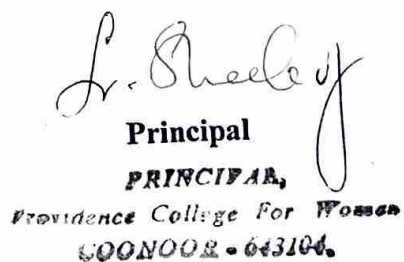 Sr. Sheeba
Principal
PRINCIPAL,
Providence College For Women
COONOOR - 643104.